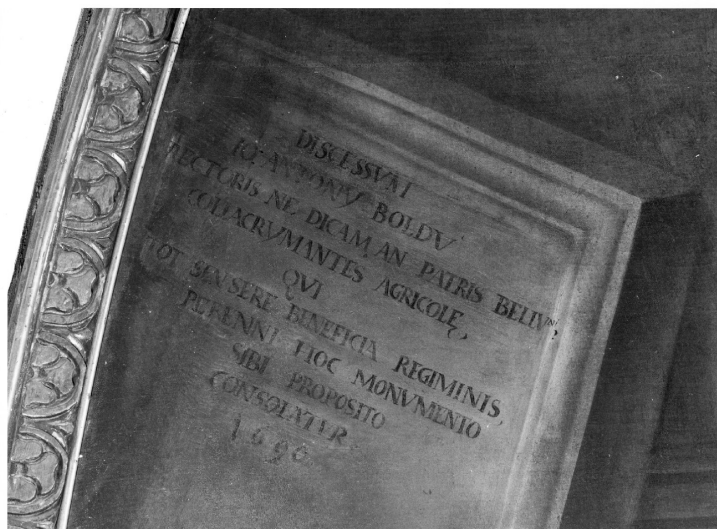 DISCESSVM
IO: ANTONY BOLDV
RECTORIS NE DICAM AN PATRIS BELLVN:
COLLACRVMANTES AGRICOLĘ,
QVI
TOT SENSERE BENEFICIA REGIMINIS,
PERENNI HOC MONVMENTO
SIBI PROPOSITO
CONSOLATER
1690